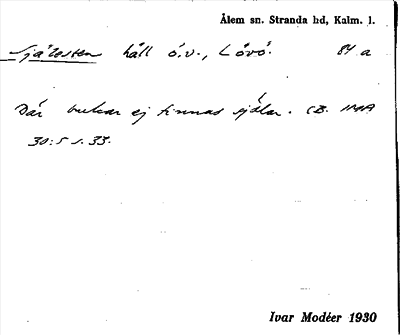 Ålem sn. Stranda hd, Kalm. l.
Självesten häll ö.v., Lövö. 84 a
Där brukar ej finnas sjölar. CB. IMA
30:5 s. 33.
Ivar Modéer 1930